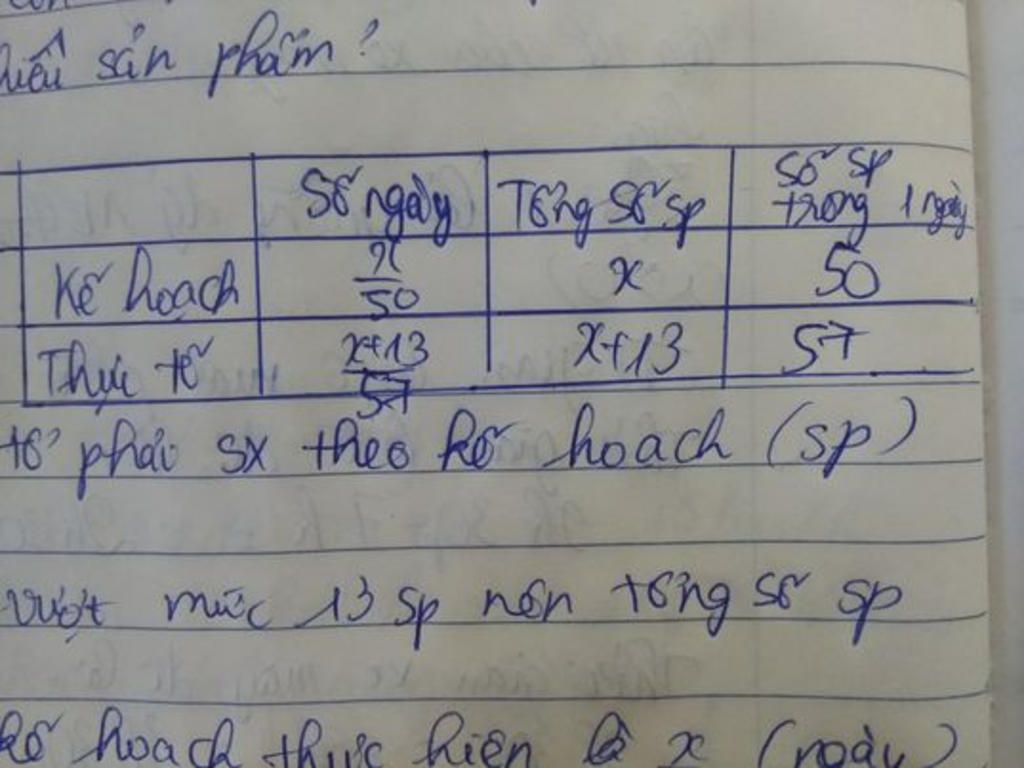 sản phẩm?
Số ngày Tổng số sp Số sp trong 1 ngày
Kế hoạch x/50 x 50
Thực tế x+13/57 x+13 57
tổ phải sx theo kế hoạch (sp)
vượt mức 13 sp nên tổng số sp
kế hoạch thực hiện là x (ngày)